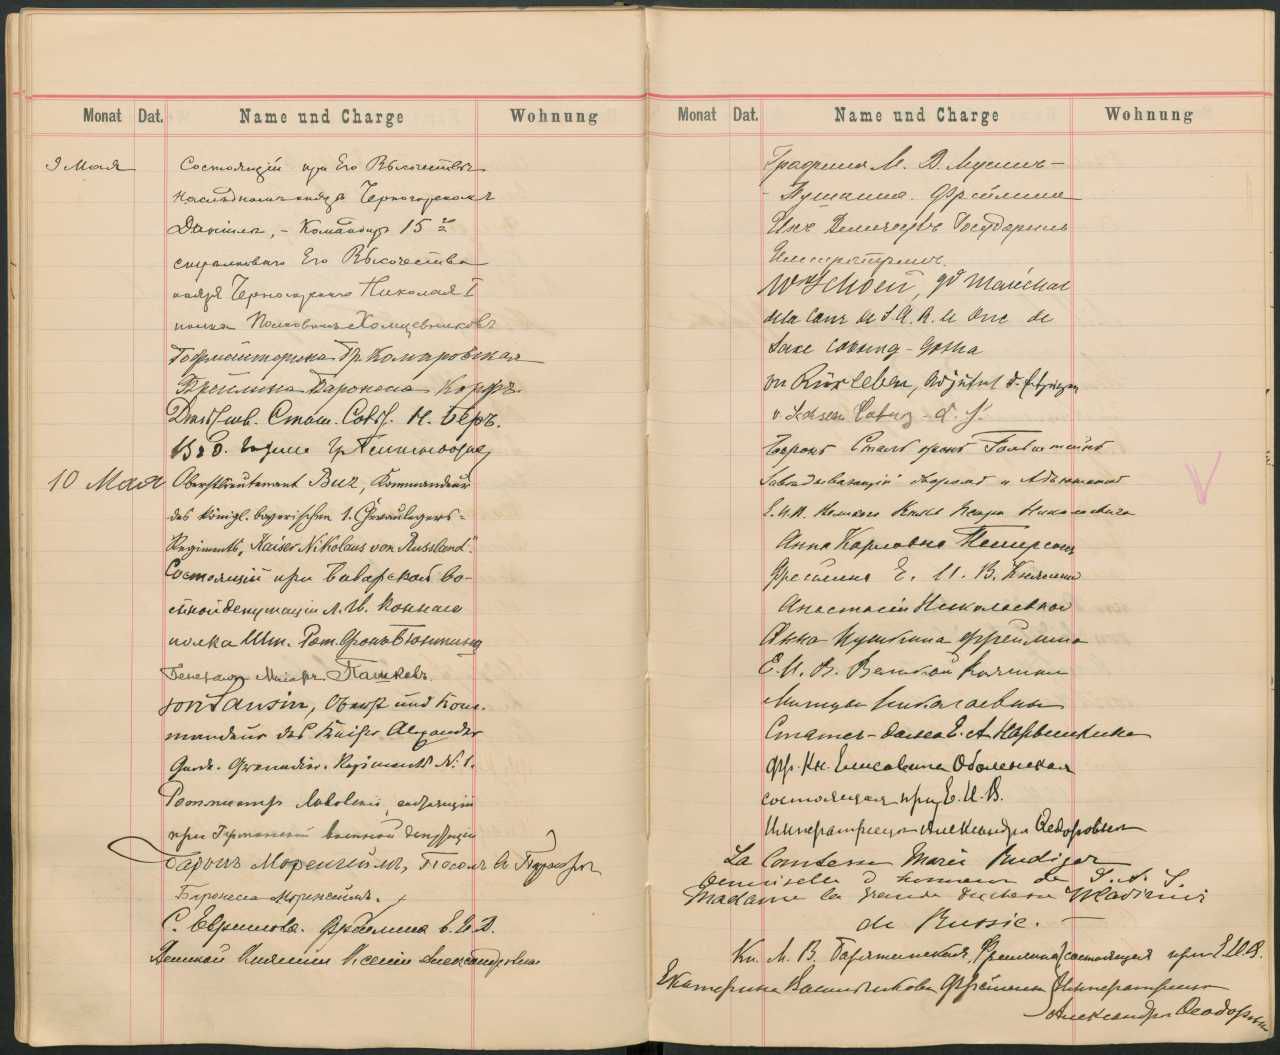 Monat Dat. Name und Charge Wohnung
9 Мая Состоящій при Его Высочествѣ
Наслѣдномъ князѣ Черногорскомъ
Даніилѣ, – Командиръ 15го
стрѣлковаго Его Высочества
князя Черногорскаго Николая I
полка Полковникъ Холщевниковъ
Гофмейстерина Гр. Комаровская
Фрейлина Баронесса Корфъ.
Дѣйств. Стат. Сов. Н. Беръ.
10 Мая Oberstlieutenant Buz, Kommandeur
des königl. bayerischen 1. Chevaulegers=
Regiments, „Kaiser Nikolaus von Russland“.
Состоящій при Баварской во-
енной депутаціи Л. Гв. Коннаго
полка Шт. Рот. фонъ Бюнтингъ
Генералъ Маіоръ Пашковъ.
Oberst und Kom-
mandeur des Kaiser Alexander
Garde. Grenadier. Regiments N. 1.
Ротмистръ состоящій
при Германской военной депутаціи
Баронъ Моренгеймъ, Посолъ въ
Баронесса Моренгеймъ.
С. Евреинова. Фрейлина Е. И. В.
Великой Княгини Ксеніи Александровны
Monat Dat. Name und Charge Wohnung
Графиня М. В. Мусинъ-
-Пушкина. Фрейлина
Ихъ Величествъ Государынь
Императрицъ.
Schoen, gd Maréchal
de la Cour de S. A. R. le Duc de
Saxe Cobourg-Gotha
von Rüxleben, Adjutant
v. Sachsen Coburg
Баронъ Сталь фонъ Гольштейнъ
Завѣдывающій Дворомъ и Адъютантъ
Е. И. В. Великаго Князя Петра Николаевича
Анна Карловна Петерсонъ
Фрейлина Е. И. В. Княгини
Анастасіи Николаевной
Анна Пушкина Фрейлина
Е. И. В. Великой Княгини
Милицы Николаевны
Статсъ-дама Е. А. Нарышкина
Фр. Кн. Елисавета Оболенская
состоящая при Е. И. В.
Императрицѣ Александрѣ Ѳедоровнѣ
La Comtesse Marie Rudiger
Demoiselle d'honneur de S. A. I.
Madame la Grande Duchesse Wladimir
de Russie. —
Кн. М. В. Барятинская, Фрейлина состоящая при Е. И. В.
Екатерина Васильчикова Фрейлина Императрицѣ
Александрѣ Ѳеодоровнѣ